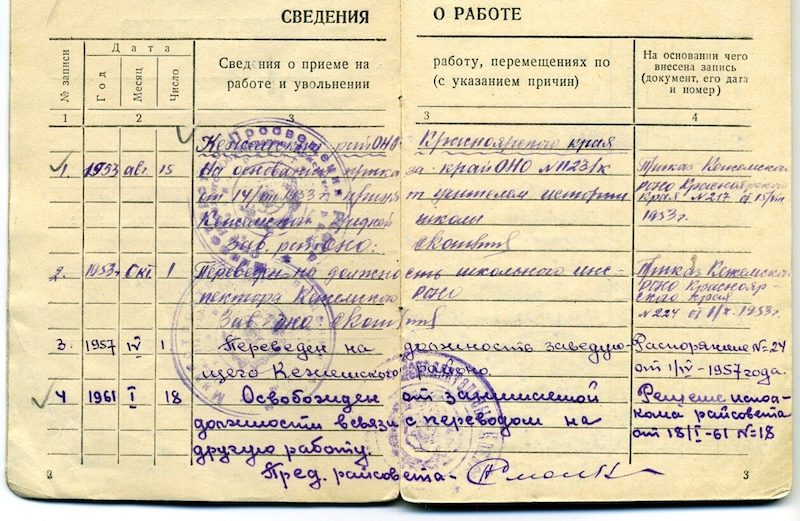 СВЕДЕНИЯ О РАБОТЕ
№ записи
Дата
Год
Месяц
Число
Сведения о приеме на работу, перемещениях по
работе и увольнении (с указанием причин)
На основании чего
внесена запись
(документ, его дата
и номер)
1 2 3 3 4
Кежемский райОНО Красноярского края
1. 1953 авг. 15 На основании приказа крайОНО №
от 14/VIII 1953 г. принят учителем истории
Кежемской средней школы
Зав. райОНО:
Приказ Кежемского
РОНО Красноярского
края № 217 от 15/VIII
1953 г.
2. 1953 Окт 1 Переведен на должность школьного инс-
пектора Кежемского РОНО
Зав. РОНО:
Приказ Кежемского
РОНО Краснояр-
ского края
№ 224 от 1/X-1953 г.
3. 1957 IV 1 Переведен на должность заведую-
щего Кежемского районо.
Распоряжение № 24
от 1/IV-1957 года.
4 1961 I 18 Освобожден от занимаемой
должности в связи с переводом на
другую работу.
Пред. райсовета-
Решение испол-
кома райсовета
от 18/I-61 № 18
2 3